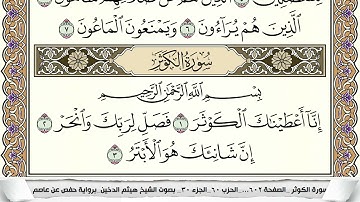 ٱلَّذِينَ هُمْ يُرَآءُونَ ٦ وَيَمْنَعُونَ ٱلْمَاعُونَ ٧
سُورَةُ الكَوْثَرِ
بِسْمِ ٱللَّهِ ٱلرَّحْمَٰنِ ٱلرَّحِيمِ
إِنَّآ أَعْطَيْنَٰكَ ٱلْكَوْثَرَ ١ فَصَلِّ لِرَبِّكَ وَٱنْحَرْ ٢
إِنَّ شَانِئَكَ هُوَ ٱلْأَبْتَرُ ٣
سورة الكوثر _الصفحة ٦٠٢_... الحزب ٦٠_ الجزء ٣٠_ بصوت الشيخ هيثم الدخين _برواية حفص عن عاصم